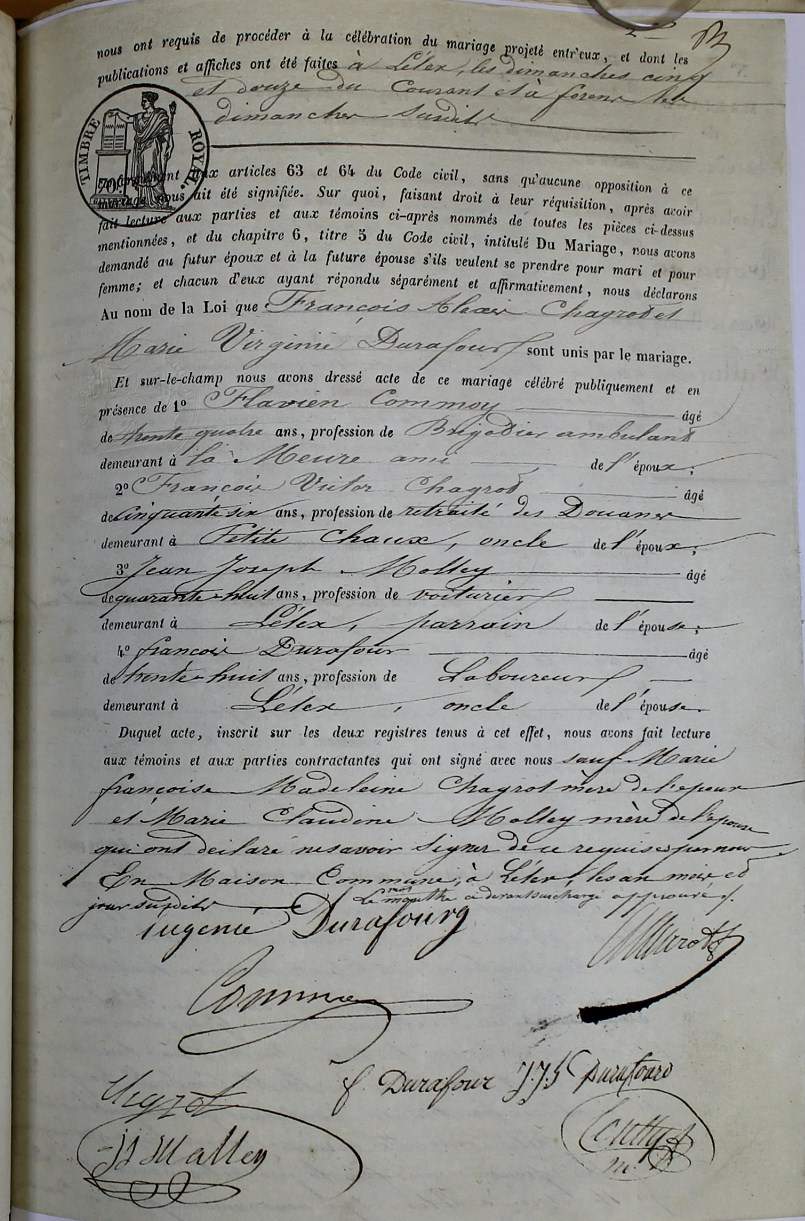 nous ont requis de procéder à la célébration du mariage projeté entr'eux, et dont les
publications et affiches ont été faites à Lélex, les dimanches cinq
et douze du Courant et à
dimanches susdits
TIMBRE ROYAL.
70
aux articles 63 et 64 du Code civil, sans qu'aucune opposition à ce
mariage nous ait été signifiée. Sur quoi, faisant droit à leur réquisition, après avoir
fait lecture aux parties et aux témoins ci-après nommés de toutes les pièces ci-dessus
mentionnées, et du chapitre 6, titre 5 du Code civil, intitulé Du Mariage, nous avons
demandé au futur époux et à la future épouse s'ils veulent se prendre pour mari et pour
femme; et chacun d'eux ayant répondu séparément et affirmativement, nous déclarons
Au nom de la Loi que François Alexis Chagrod et
Marie Virginie Durafour sont unis par le mariage.
Et sur-le-champ nous avons dressé acte de ce mariage célébré publiquement et en
présence de 1º Flavien Commoy âgé
de trente quatre ans, profession de Brigadier ambulant
demeurant à la Meure ami de l'époux;
2º François Victor Chagrod âgé
de cinquante six ans, profession de retraité des Douanes
demeurant à Petite Chaux, oncle de l'époux;
3º Jean Joseph Molley âgé
de quarante-huit ans, profession de voiturier
demeurant à Lélex, parrain de l'épouse;
4º françois Durafour âgé
de trente-huit ans, profession de Laboureur
demeurant à Lélex, oncle de l'épouse.
Duquel acte, inscrit sur les deux registres tenus à cet effet, nous avons fait lecture
aux témoins et aux parties contractantes qui ont signé avec nous sauf Marie
françoise Madeleine Chagrot mère de l'époux
et Marie Claudine Molley mère de l'épouse
qui ont déclaré ne savoir signer de ce requises par nous
En Maison Commune, à Lélex, les an mois et
jour susdits Le mot ci devant surchargé approuvé
Eugénie Durafourg
Commoy
f. Durafour J.J.S Durafourd
Chagrot
JJ Malley